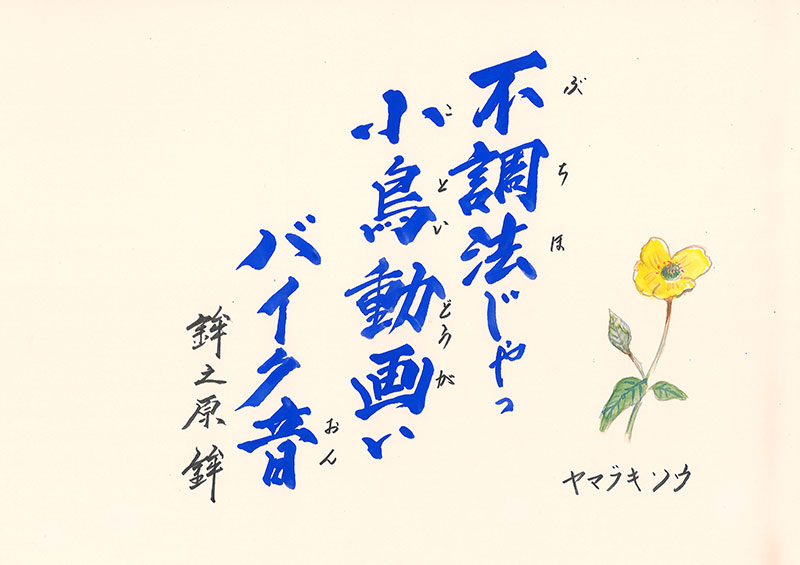 不調法じゃっ
ぶちほ
小鳥動画い
ことい どうが
バイク音
おん
鉾之原 鉾
ヤマブキソウ